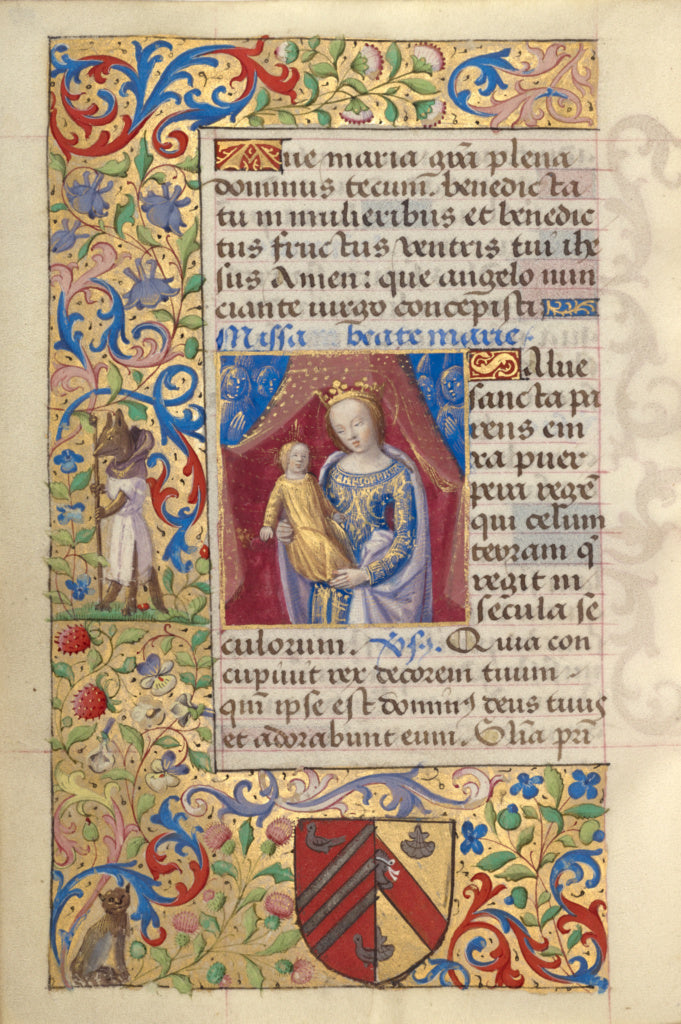 Aue maria gr̃a plena
dominus tecum. benedicta
tu in mulieribus et benedic
tus fructus ventris tui ihe
sus Amen: que angelo nun
ciante uirgo concepisti
Missa beate marie.
Salue
sancta pa
rens eni
xa puer
pera regẽ
qui celum
terram q̃
regit in
secula se
culorum. Vs̃. Quia con
cupiuit rex decorem tuum
qm̃ ipse est dominꝰ deus tuus
et adorabunt eum. Gl̃ia pr̃i